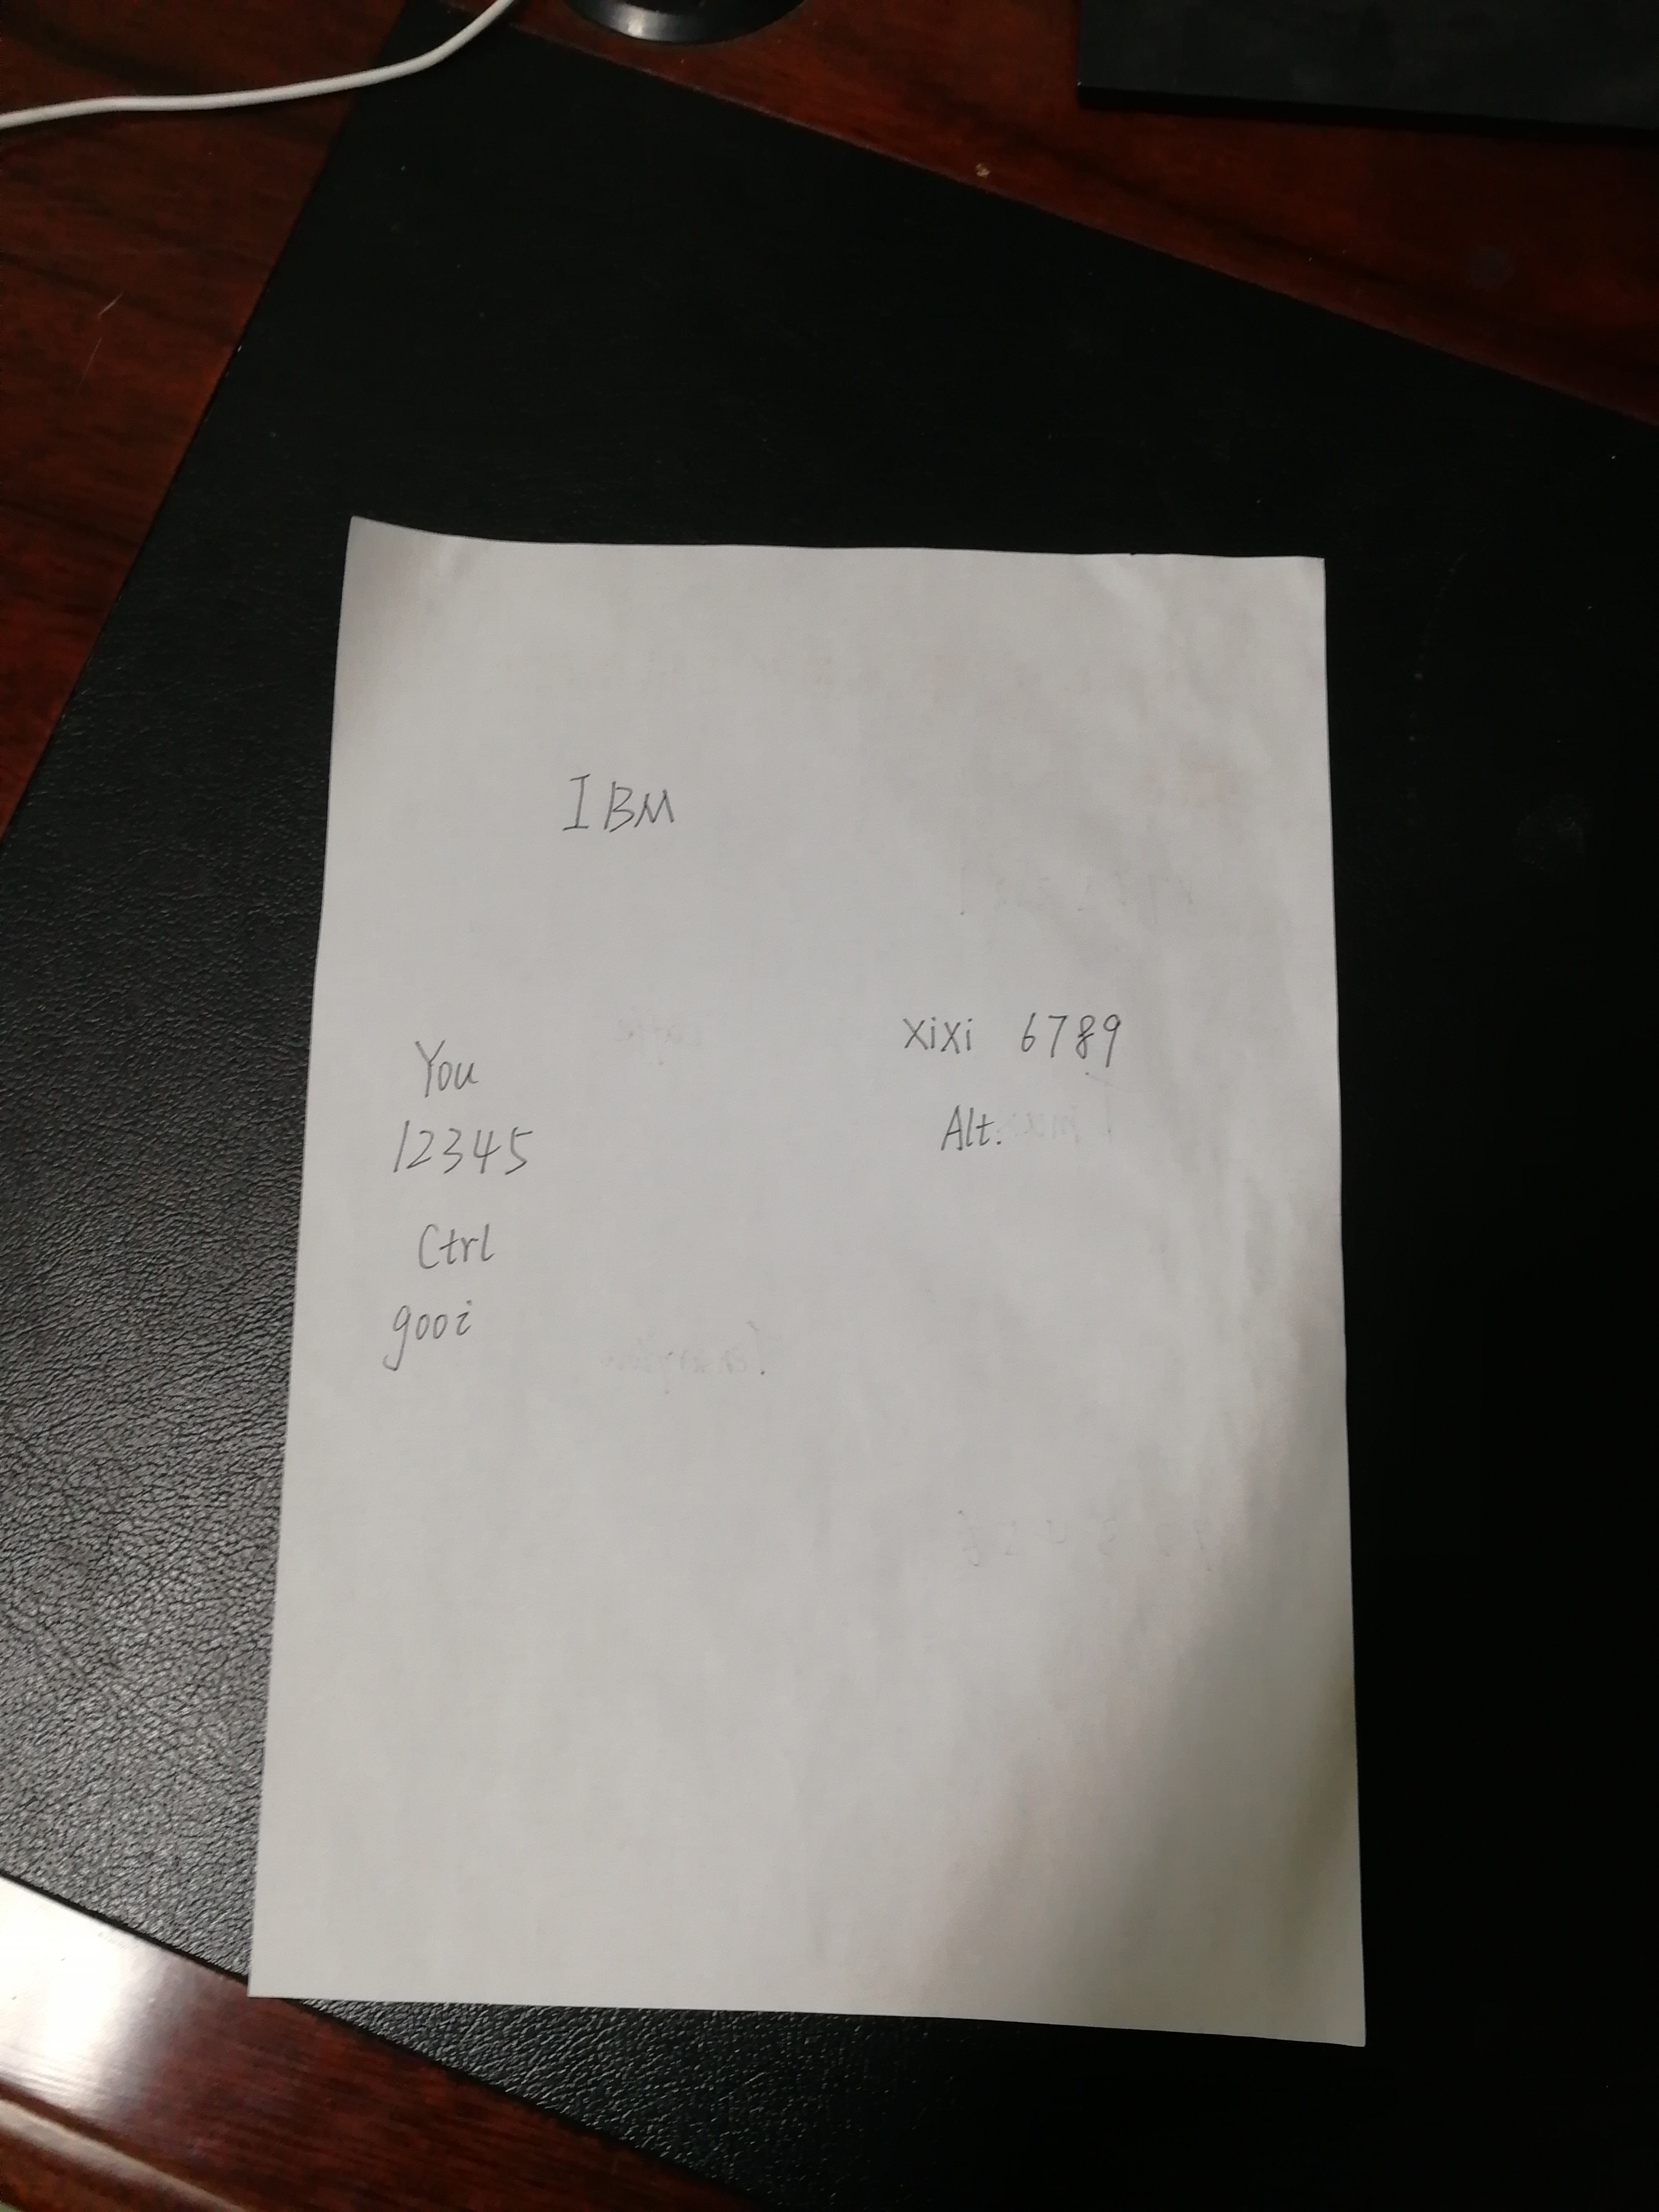 IBM
You
12345
Ctrl
gooi
XiXi 6789
Alt.